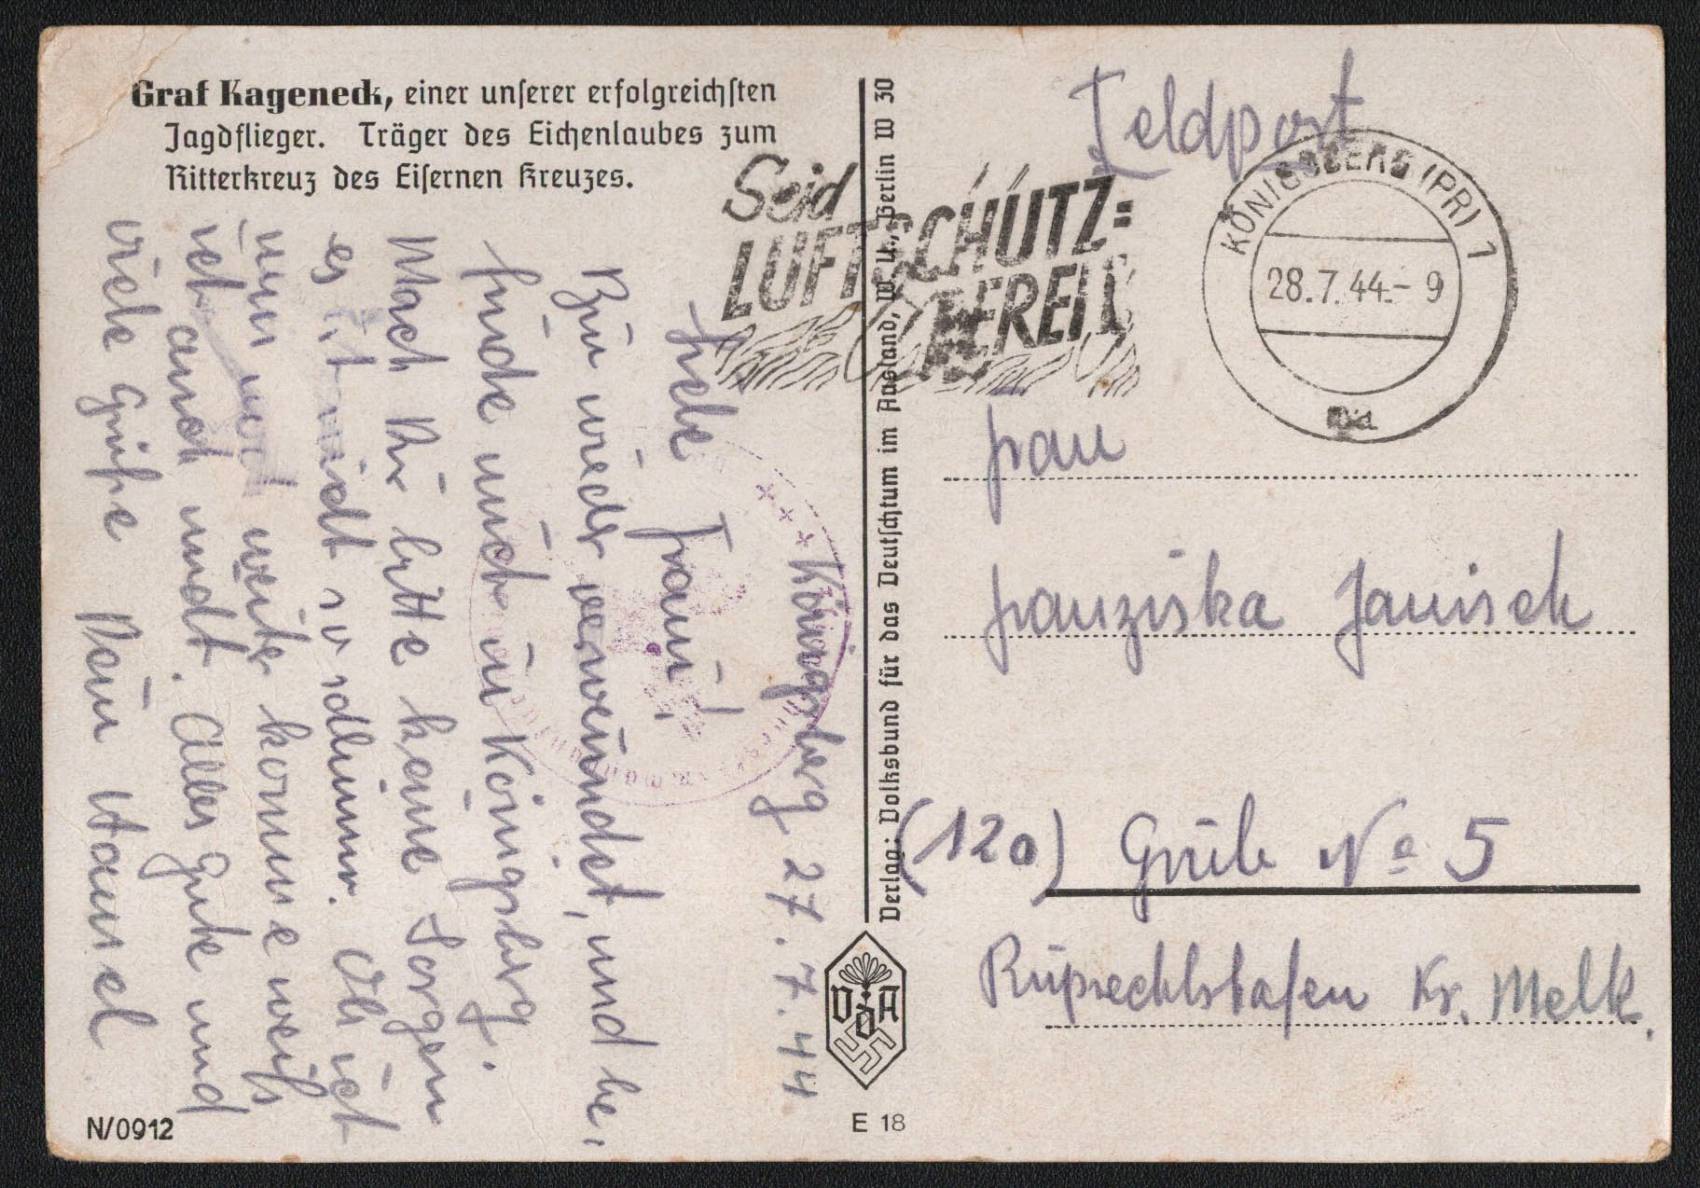 Graf Kageneck, einer unserer erfolgreichsten
Jagdflieger. Träger des Eichenlaubes zum
Ritterkreuz des Eisernen Kreuzes.
Königsberg 27.7.44
Liebe Fanni!
Bin wieder verwundet, und be-
finde mich in Königsberg.
Mach Dir bitte keine Sorgen
es ist nicht so schlimm. Ob ich
nun noch weiter komme weiß
ich auch nicht. Alles gute und
viele Grüße Dein Hansel
N/0912
Verlag: Volksbund für das Deutschtum im Ausland, W. U., Berlin W 30
VdA
E 18
Feldpost
Seid
LUFTSCHUTZ=
BEREIT
KÖNIGSBERG (PR) 1
28.7.44.- 9
Frau
Franziska Janisch
(12a) Grub No 5
Ruprechtshofen Kr. Melk.